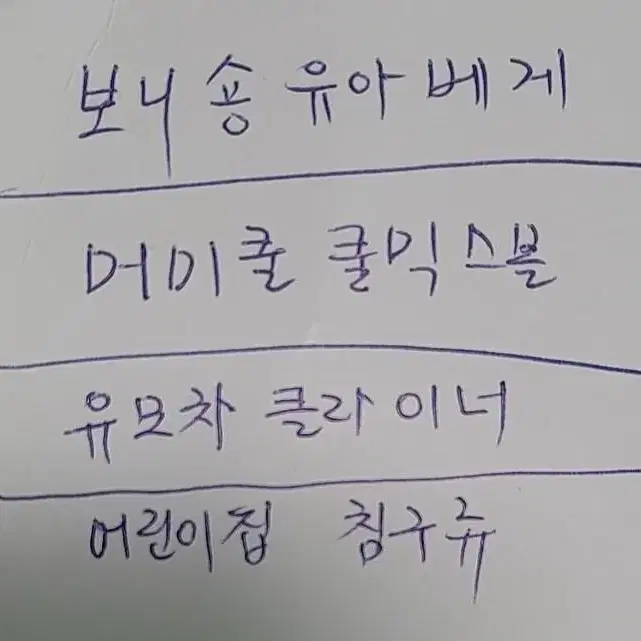 보니송 유아베게
머미쿨 쿨믹스블
유모차 클라이너
어린이집 침구큐